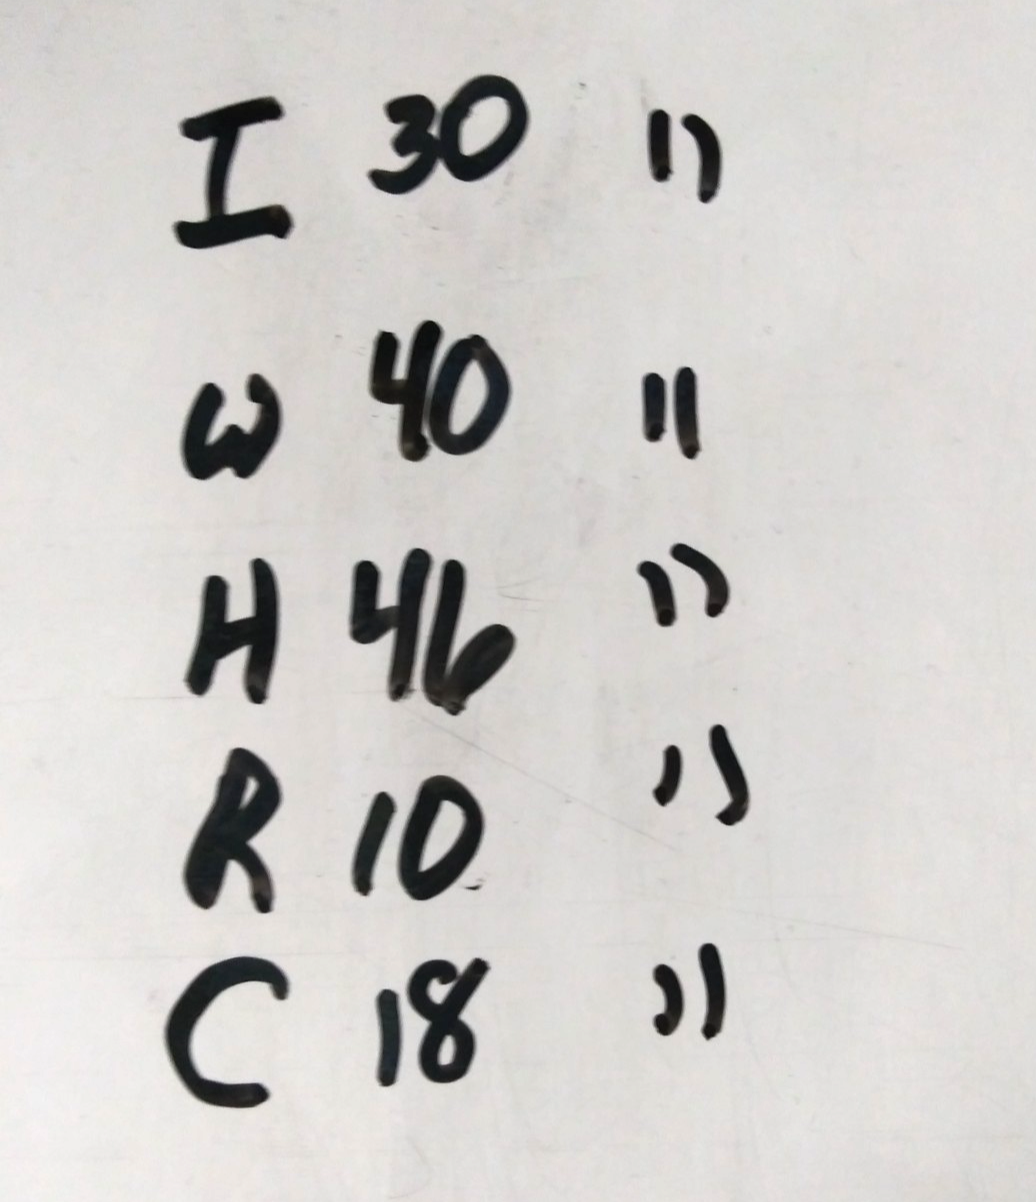 I 30 "
W 40 "
H 46 "
R 10 "
C 18 "